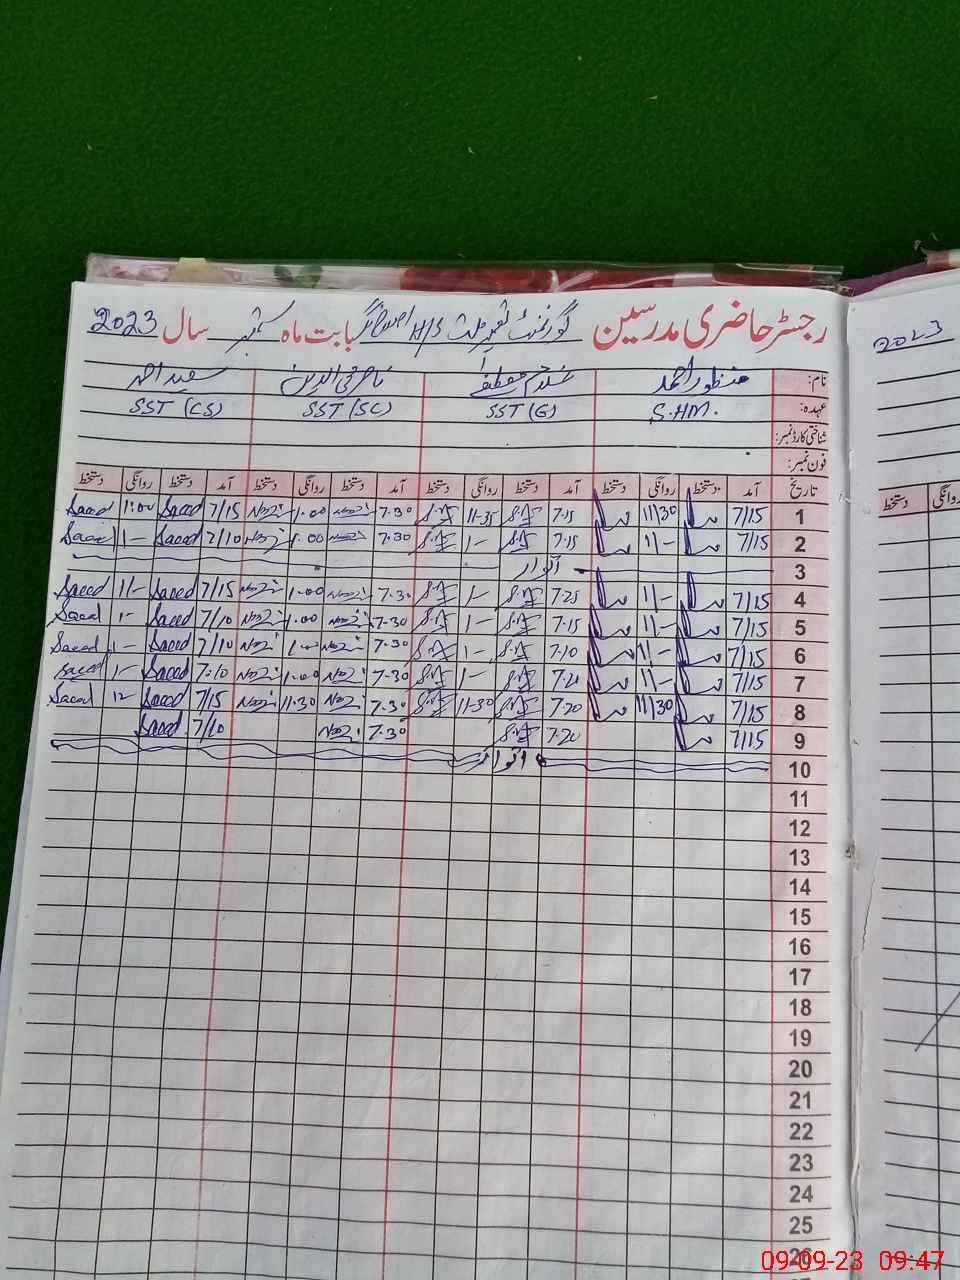 رجسٹر حاضری مدرسین گورنمنٹ تعمیر ملت H/S بابت ماہ ستمبر سال 2023
2023
نام: منظور احمد غلام مصطفیٰ ناصر محی الدین سعید احمد
عہدہ: S.HM. SST (G) SST (SC) SST (CS)
شناختی کارڈ نمبر:
فون نمبر:
تاریخ آمد دستخط روانگی دستخط آمد دستخط روانگی دستخط آمد دستخط روانگی دستخط آمد دستخط روانگی دستخط
روانگی دستخط
1 7/15 11/30 7.15 11-35 7.30 1.00 7/15 Saeed 1:00 Saeed
2 7/15 11/- 7.15 1- 7.30 1.00 7/10 Saeed 1- Saeed
3 اتوار
4 7/15 11/- 7.25 1- 7.30 1.00 7/15 Saeed 1/- Saeed
5 7/15 11/- 7.15 1- 7.30 1.00 7/10 Saeed 1- Saeed
6 7/15 11/- 7.10 1- 7.30 7/10 Saeed 1- Saeed
7 7/15 11/- 7.20 1- 7.30 1.00 7:10 Saeed 1- Saeed
8 7/15 11/30 7.20 11-30 7.30 11.30 7/15 Saeed 12- Saeed
9 7/15 7.20 7.30 7/10 Saeed
10 اتوار
11
12
13
14
15
16
17
18
19
20
21
22
23
24
25
26
09-09-23 09:47